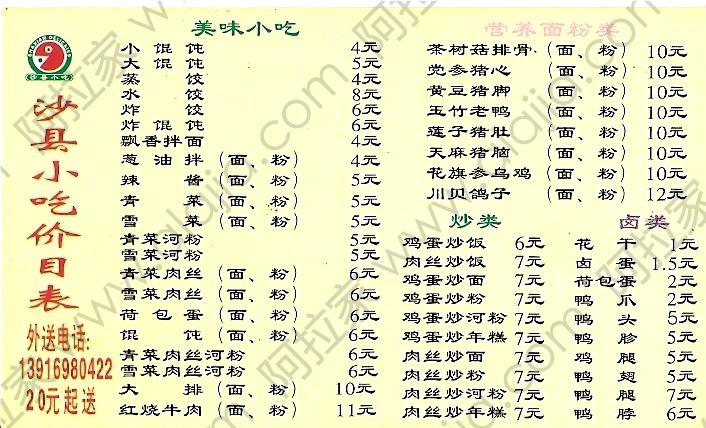 SHAXIAN DELICACIES
沙县小吃
沙县小吃价目表
外送电话:
13916980422
20元起送
美味小吃
小馄饨 4元
大馄饨 5元
蒸饺 4元
水饺 8元
炸饺 6元
炸馄饨 6元
飘香拌面 4元
葱油拌（面、粉） 4元
辣酱（面、粉） 5元
青菜（面、粉） 5元
雪菜（面、粉） 5元
青菜河粉 5元
雪菜河粉 5元
青菜肉丝（面、粉） 6元
雪菜肉丝（面、粉） 6元
荷包蛋（面、粉） 6元
馄饨（面、粉） 6元
青菜肉丝河粉 6元
雪菜肉丝河粉 6元
大排（面、粉） 10元
红烧牛肉（面、粉） 11元
营养面粉类
茶树菇排骨（面、粉） 10元
党参猪心（面、粉） 10元
黄豆猪脚（面、粉） 10元
玉竹老鸭（面、粉） 10元
莲子猪肚（面、粉） 10元
天麻猪脑（面、粉） 10元
花旗参乌鸡（面、粉） 10元
川贝鸽子（面、粉） 12元
炒类
鸡蛋炒饭 6元
肉丝炒饭 7元
鸡蛋炒面 7元
鸡蛋炒粉 7元
鸡蛋炒河粉 7元
鸡蛋炒年糕 7元
肉丝炒面 7元
肉丝炒粉 7元
肉丝炒河粉 7元
肉丝炒年糕 7元
卤类
花干 1元
卤蛋 1.5元
荷包蛋 2元
鸭爪 2元
鸭头 5元
鸭胗 5元
鸡腿 5元
鸭翅 5元
鸭腿 7元
鸭脖 6元
阿拉家 www.alajia.com